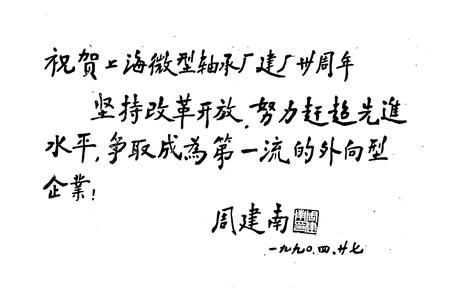 祝贺上海微型轴承厂建厂廿周年
坚持改革开放，努力赶超先進
水平，争取成為第一流的外向型
企業！
周建南
一九九〇.四.廿七